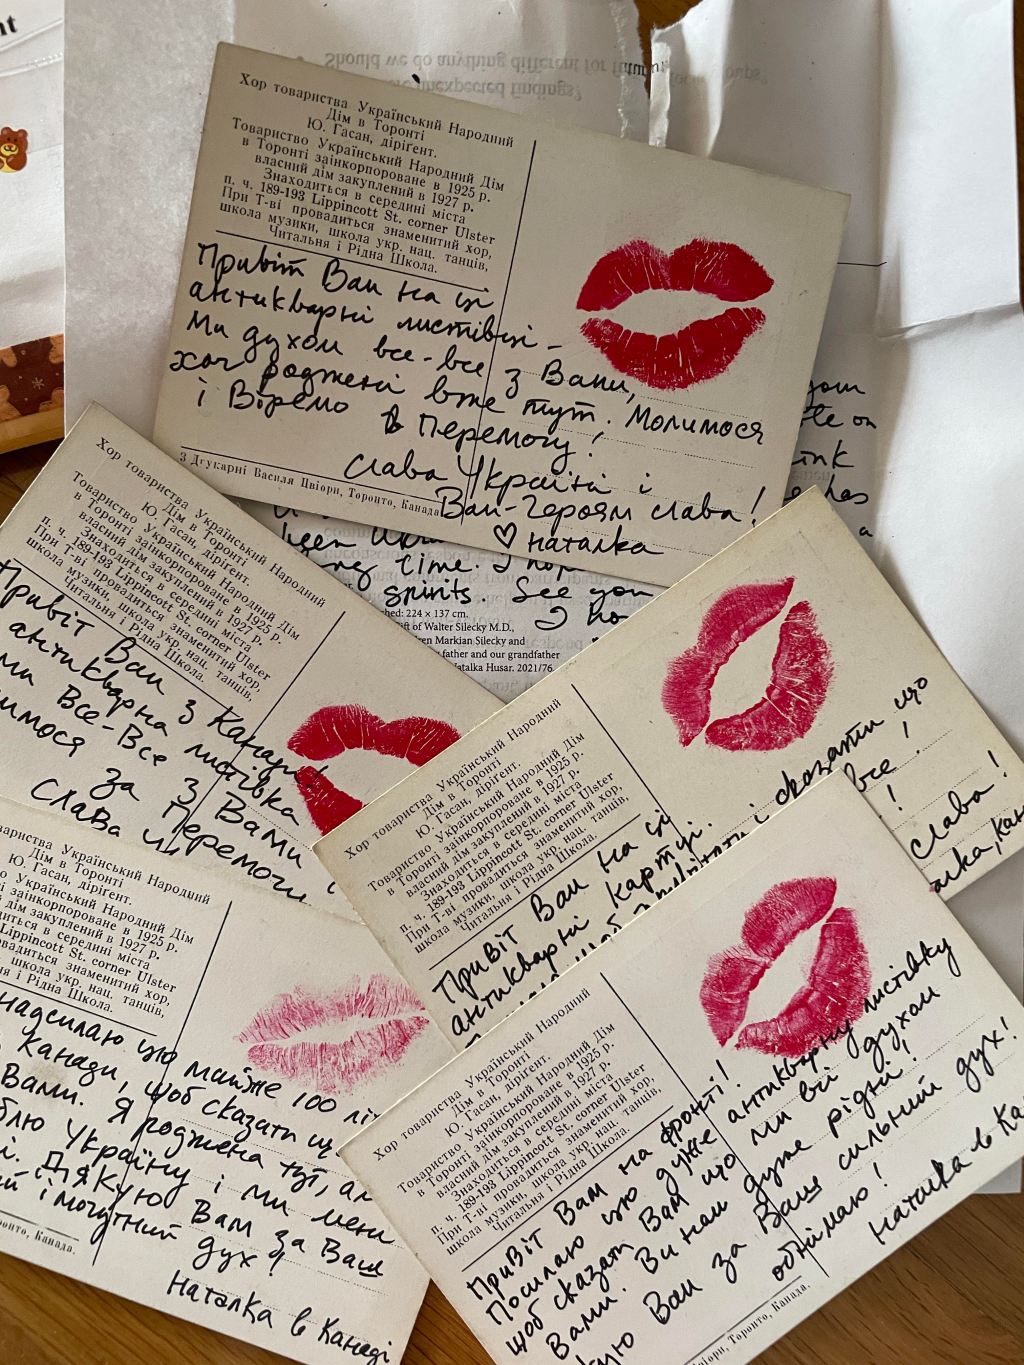 nt
Should we do anything different for future focus groups?
unexpected findings?
Хор товариства Український Народний
Дім в Торонті
Ю. Гасан, дірігент.
Товариство Український Народний Дім
в Торонті заінкорпороване в 1925 р.
власний дім закуплений в 1927 р.
Знаходиться в середині міста
п. ч. 189-193 Lippincott St. corner Ulster
При Т-ві провадиться знаменитий хор,
школа музики, школа укр. нац. танців,
Читальня і Рідна Школа.
Привіт Вам на ці
антикварні листівці –
Ми духом все-все з Вами,
хоч роджені вже тут. Молимося
і Віремо в Перемогу!
Слава Україні і
Вам-Героям слава!
♡ наталка
З Друкарні Василя Цвіори, Торонто, Канада.
your
on
has
a
time. I
spirits. See you
I
ched: 224 × 137 cm.
ift of Walter Silecky M.D.,
ren Markian Silecky and
father and our grandfather
Natalka Husar. 2021/76
Хор товариства Український Народний
Дім в Торонті
Ю. Гасан, дірігент.
Товариство Український Народний Дім
в Торонті заінкорпороване в 1925 р.
власний дім закуплений в 1927 р.
Знаходиться в середині міста
п. ч. 189-193 Lippincott St. corner Ulster
При Т-ві провадиться знаменитий хор,
школа музики, школа укр. нац. танців,
Читальня і Рідна Школа.
Привіт Вам з Канади!
антикварна листівка
ми Все-Все з Вами і
имося за Перемоги
Слава
Хор товариства Український Народний
Дім в Торонті
Ю. Гасан, дірігент.
Товариство Український Народний Дім
в Торонті заінкорпороване в 1925 р.
власний дім закуплений в 1927 р.
Знаходиться в середині міста
п. ч. 189-193 Lippincott St. corner Ulster
При Т-ві провадиться знаменитий хор,
школа музики, школа укр. нац. танців,
Читальня і Рідна Школа.
Привіт Вам на ці
антикварні картці.
і сказати що
все!
!
Слава!
алка, Кан
товариства Український Народний
Дім в Торонті
Ю. Гасан, дірігент.
о Український Народний Дім
і заінкорпороване в 1925 р.
й дім закуплений в 1927 р.
одиться в середині міста
Lippincott St. corner Ulster
провадиться знаменитий хор,
школа укр. нац. танців,
я і Рідна Школа.
надсилаю цю майже 100 літ
Канади, щоб сказати щ
Вами. Я роджена тут, ал
блю Україну і ми мені
і. Дякую Вам за Ваш
й і могутний дух!
Наталка в Канаді
оронто, Канада.
Хор товариства Український Народний
Дім в Торонті
Ю. Гасан, дірігент.
Товариство Український Народний Дім
в Торонті заінкорпороване в 1925 р.
власний дім закуплений в 1927 р.
Знаходиться в середині міста
п. ч. 189-193 Lippincott St. corner Ulster
При Т-ві провадиться знаменитий хор,
школа музики, школа укр. нац. танців,
Читальня і Рідна Школа.
Привіт Вам на фронті!
Посилаю цю дуже антикварну листівку
щоб сказати Вам що ми всі духом
Вами. Ви нам дуже рідні!
кую Вам за Ваш сильний дух!
обнімаю!
Наталка в Ка
Цвіори, Торонто, Канада.